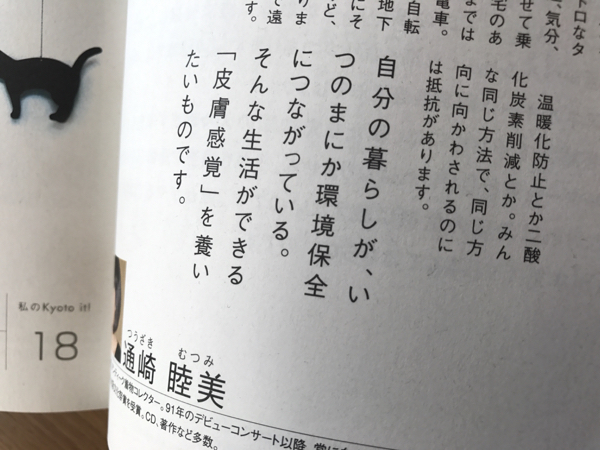 トロなタ
、気分、
せて乗
宅のあ
までは
電車。
自転
地下
にそ
ど、
りま
て遠
す。
温暖化防止とか二酸
化炭素削減とか。みん
な同じ方法で、同じ方
向に向かわされるのに
は抵抗があります。
自分の暮らしが、い
つのまにか環境保全
につながっている。
そんな生活ができる
「皮膚感覚」を養い
たいものです。
私のKyoto it!
18
つうざき むつみ
通崎 睦美
着物コレクター。91年のデビューコンサート以降、常に
賞を受賞。CD、著作など多数。